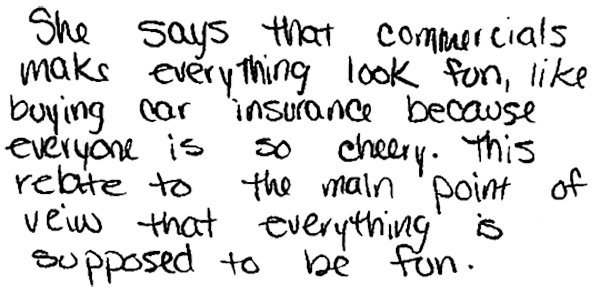 She says that commercials
make everything look fun, like
buying car insurance because
everyone is so cheery. This
relate to the main point of
veiw that everything is
supposed to be fun.